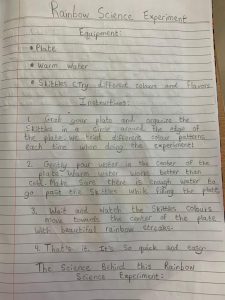 Rainbow Science Experiment
Equipment:
• Plate
• Warm Water
• Skittles (Try different colours and flavors
Instructions:
1. Grab your plate and organize the
Skittles in a circle around the edge of
the plate. We tried different colour patterns
each time when doing the experiment!
2. Gently pour water in the center of the
plate. Warm water works better than
cold. Make sure there is enough water to
go past the Skittles while filling the plate
3. Wait and watch the Skittles colours
move towards the center of the plate
with beautiful rainbow streaks.
4. That's it. It's so quick and easy
The Science Behind this Rainbow
Science Experiment: